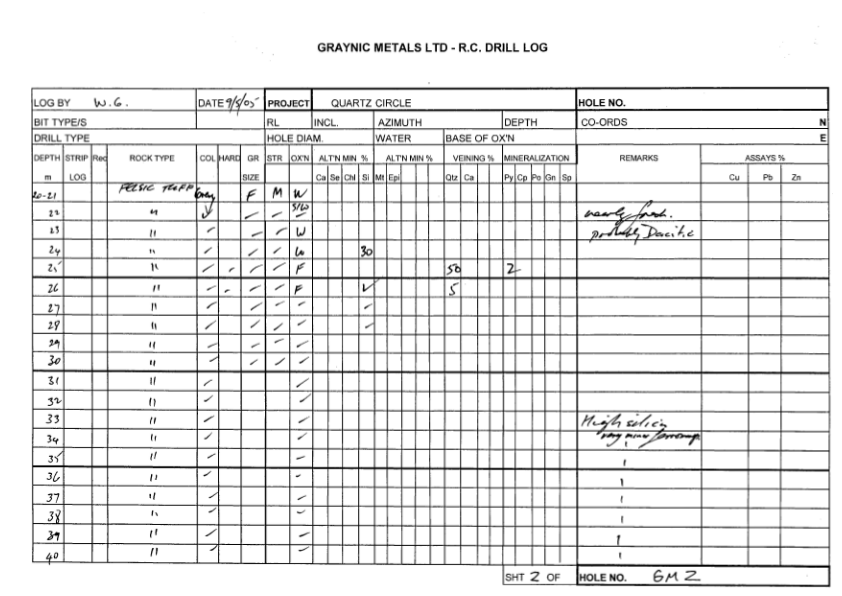 GRAYNIC METALS LTD - R.C. DRILL LOG
LOG BY W.G. DATE 9/5/05 PROJECT QUARTZ CIRCLE HOLE NO.
BIT TYPE/S RL INCL. AZIMUTH DEPTH CO-ORDS N
DRILL TYPE HOLE DIAM. WATER BASE OF OX'N E
DEPTH STRIP Rec ROCK TYPE COL HARD GR STR OX'N ALT'N MIN % ALT'N MIN % VEINING % MINERALIZATION REMARKS ASSAYS %
m LOG SIZE Ca Se Chl Si Mt Epi Qtz Ca Py Cp Po Gn Sp Cu Pb Zn
20-21 FELSIC TUFF Grey F M W
22 " S/W nearly fresh.
23 " W probably Dacitic
24 " W 30
25 " F 50 2
26 " F ✓ 5
27 "
28 "
29 "
30 "
31 "
32 "
33 " High silica
34 " very minor
35 "
36 "
37 "
38 "
39 "
40 "
SHT 2 OF HOLE NO. GM 2